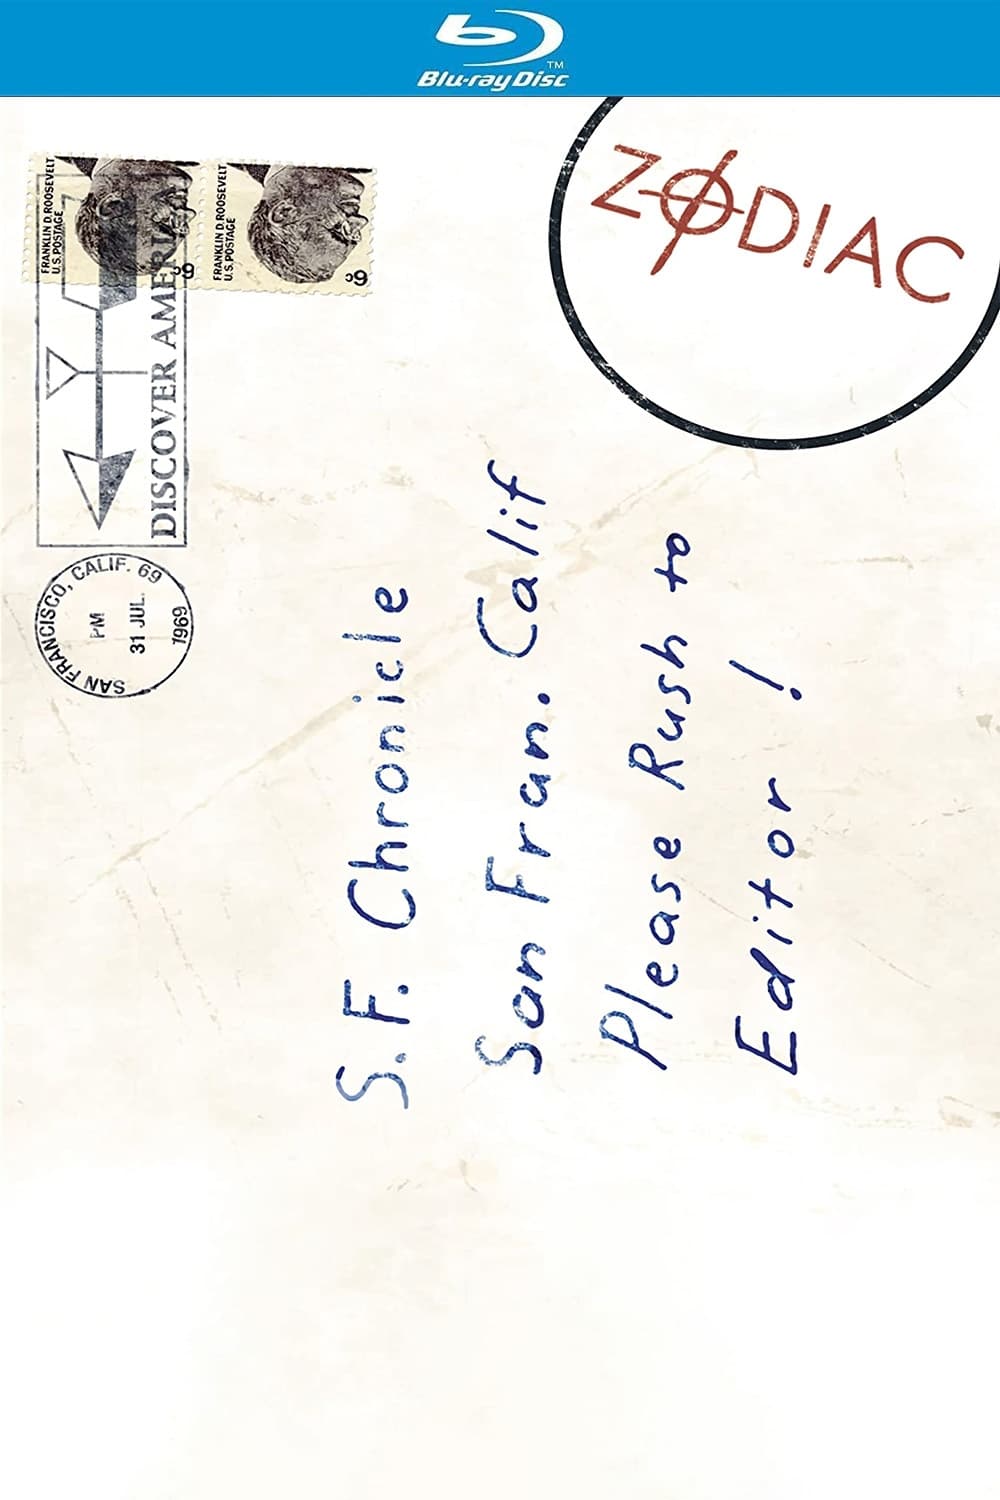 Blu-ray Disc
TM
ZODIAC
FRANKLIN D. ROOSEVELT
U.S. POSTAGE
6¢
FRANKLIN D. ROOSEVELT
U.S. POSTAGE
6¢
DISCOVER AMERICA
SAN FRANCISCO, CALIF. 69
PM
31 JUL.
1969
S.F. Chronicle
San Fran. Calif
Please Rush to
Editor!